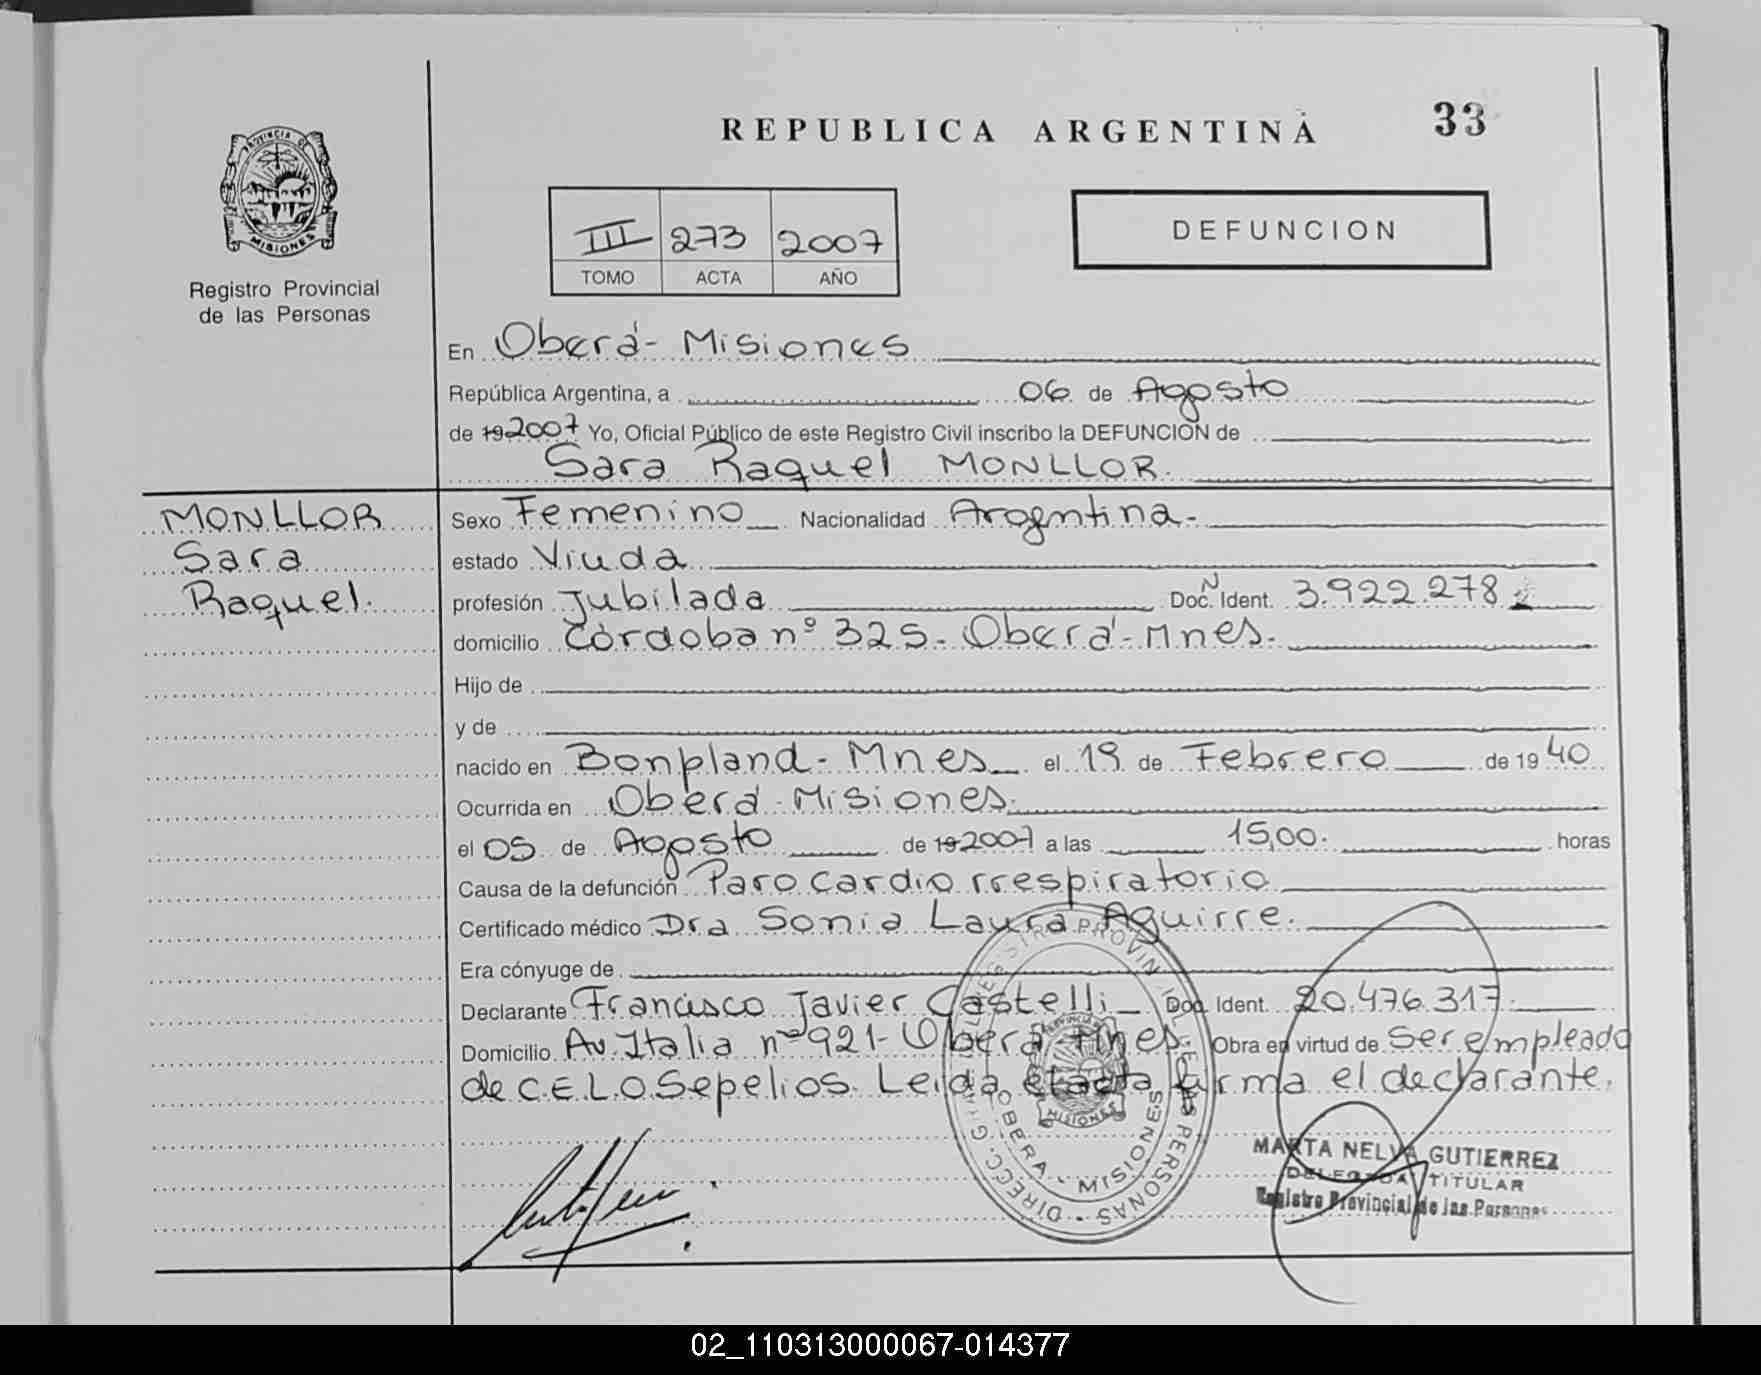 REPUBLICA ARGENTINA
33
PROVINCIA DE
MISIONES
Registro Provincial
de las Personas
III 273 2007
TOMO ACTA AÑO
DEFUNCION
En Oberá - Misiones
República Argentina, a 06 de Agosto
de 19 2007 Yo, Oficial Público de este Registro Civil inscribo la DEFUNCION de
Sara Raquel MONLLOR.
MONLLOR
Sara
Raquel.
Sexo Femenino Nacionalidad Argentina.-
estado Viuda
profesión Jubilada Doc. N Ident. 3.922.278
domicilio Córdoba nº 325 - Oberá - Mnes.
Hijo de
y de
nacido en Bonpland - Mnes el 19 de Febrero de 19 40
Ocurrida en Oberá - Misiones.
el 05 de Agosto de 19 2007 a las 15,00. horas
Causa de la defunción Paro cardio rrespiratorio
Certificado médico Dra Sonia Laura Aguirre.
Era cónyuge de
Declarante Francisco Javier Castelli Doc. Ident. 20.476.317.
Domicilio Av. Italia nº 921 - Oberá Mnes. Obra en virtud de Ser empleado
de C.E.L.O Sepelios. Leida el acta firma el declarante.
OBERA - MISIONES
MISIONES
MARTA NELVA GUTIERREZ
DELEGADA TITULAR
Registro Provincial de las Personas
02_110313000067-014377